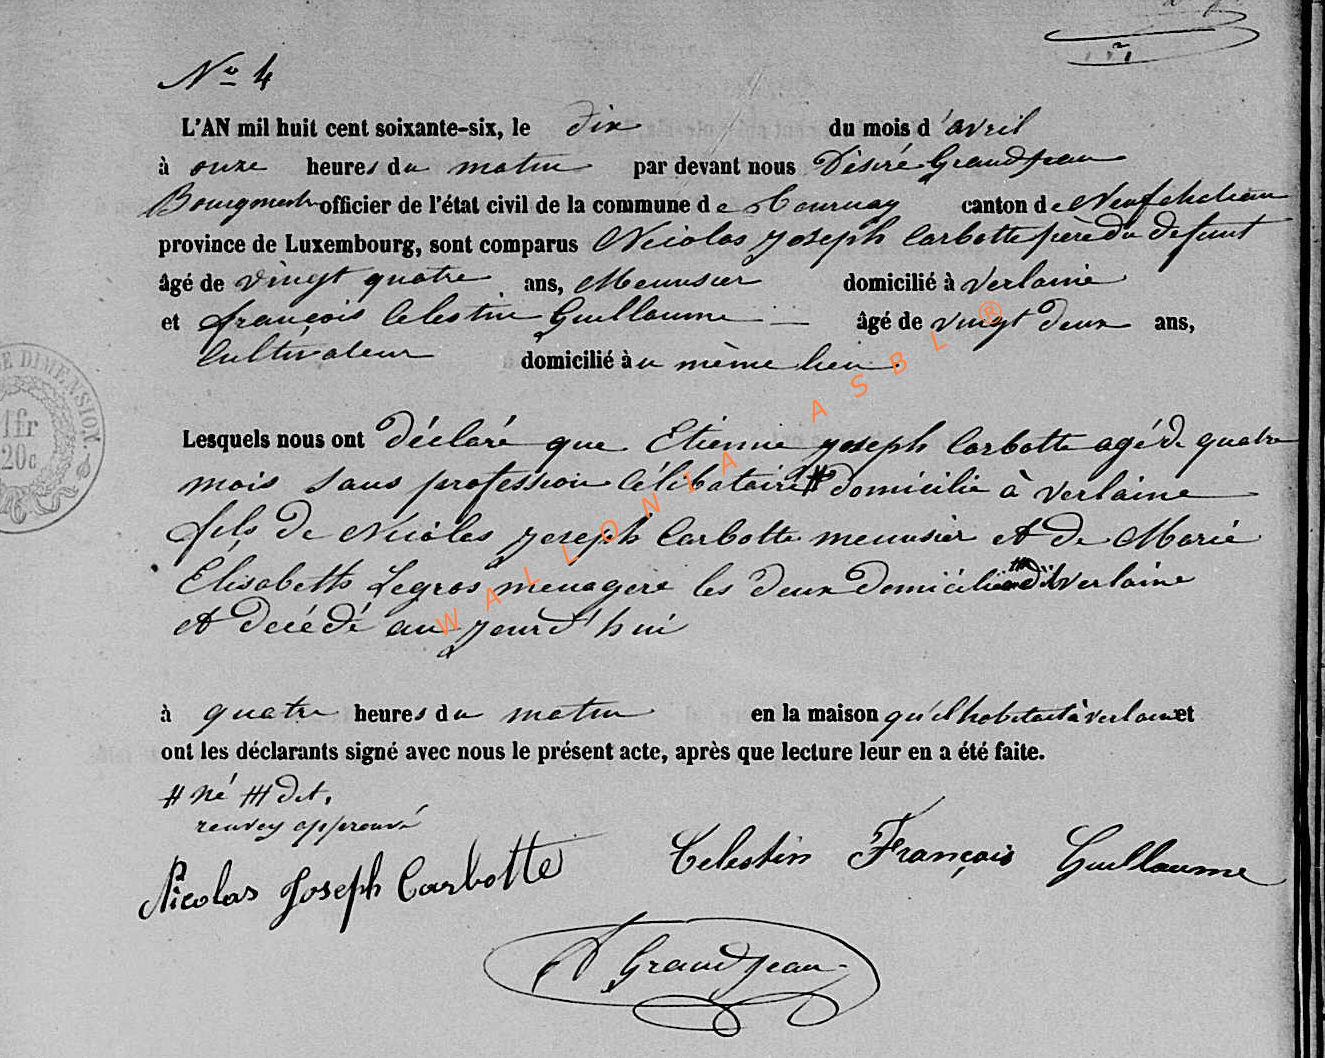 N° 4
L'AN mil huit cent soixante-six, le dix du mois d'avril
à onze heures du matin par devant nous Désiré Grandjean
Bourgmestre officier de l'état civil de la commune de Tournay canton de Neufchateau
province de Luxembourg, sont comparus Nicolas Joseph Carbotte père du defunt
âgé de vingt quatre ans, Menusier domicilié à Verlaine
et françois Celestin Guillaume âgé de vingt deux ans,
Cultivateur domicilié àu même lieu.
Lesquels nous ont déclaré que Etienne Joseph Carbotte agé de quatre
mois sans profession Célibataire # domicilié à Verlaine
fils de Nicolas Joseph Carbotte menusier et de Marie
Elisabeth Legros menagere les deux domicilié dit Verlaine
et decédé aujourd'hui
à quatre heures du matin en la maison qu'il habitait à verlaine et
ont les déclarants signé avec nous le présent acte, après que lecture leur en a été faite.
# né ## dit.
renvoy approuvé
Nicolas Joseph Carbotte Celestin François Guillaume
D Grandjean
E DIMENSION
1fr
20c
WALLONIA ASBL ®